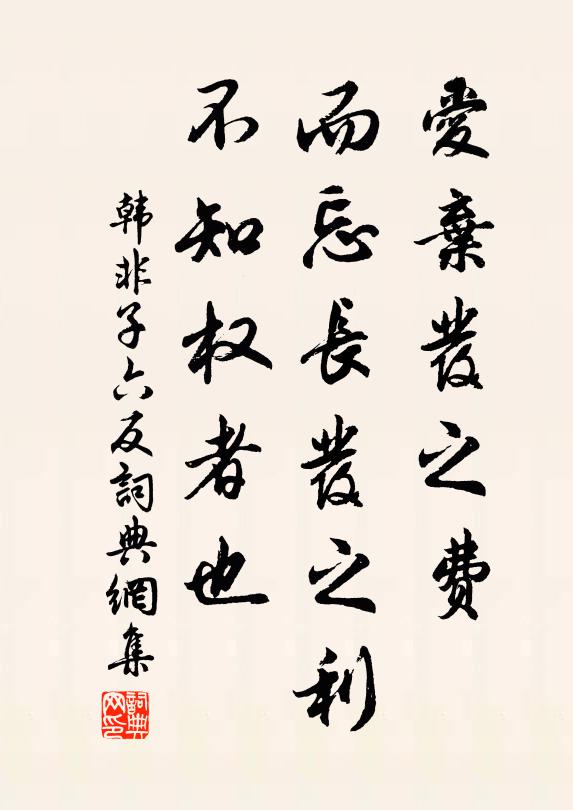 愛棄髮之費
而忘長髮之利
不知权者也
韩非子六反詞典網集
詞典网印